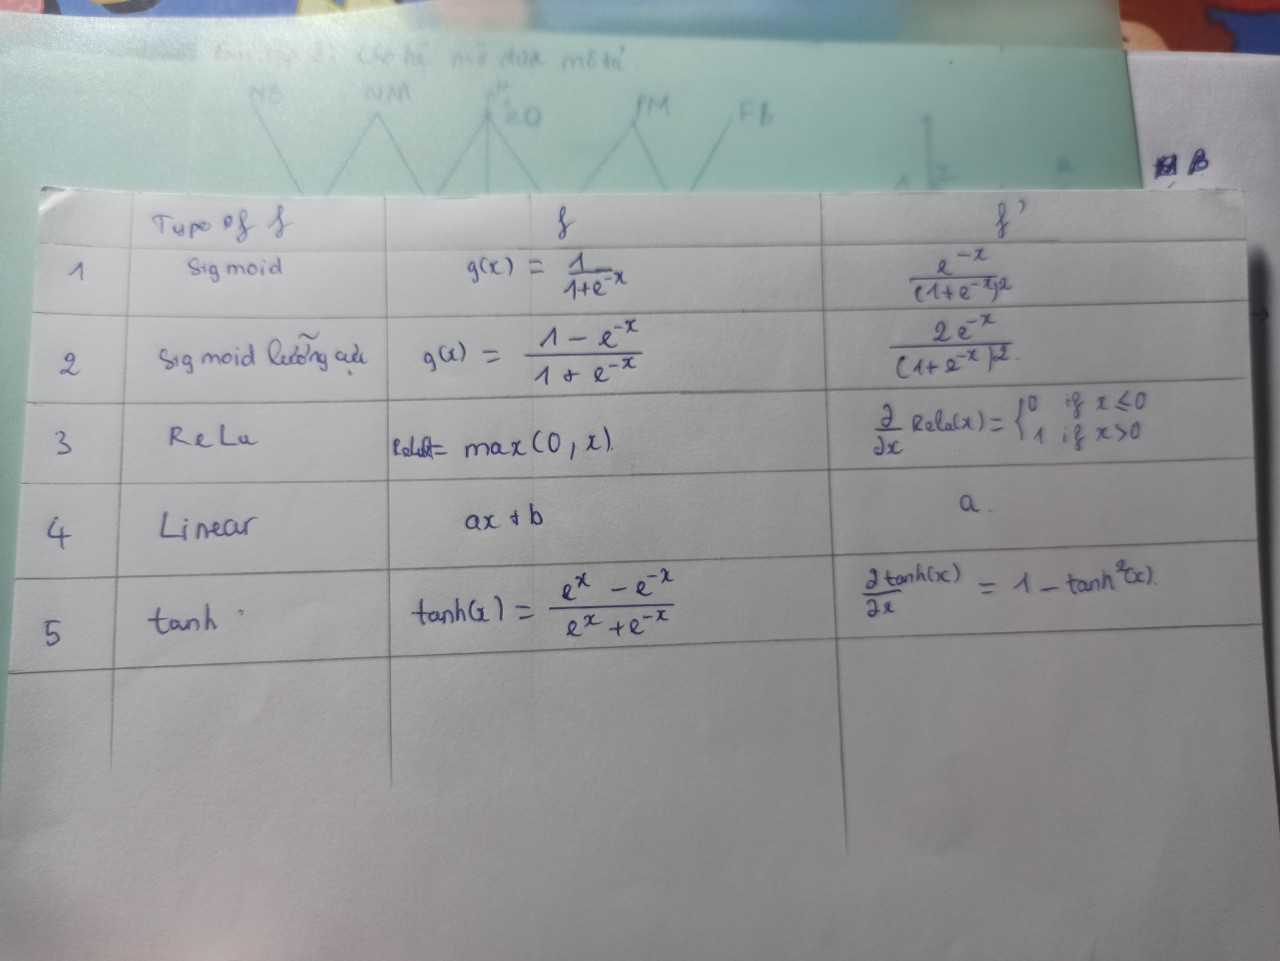 Bài tập 2: Cho hệ mờ được mô tả
NB NM ZO PM PB
B
Type of f f f'
1 Sigmoid g(x) = 1/(1+e^-x) e^-x/(1+e^-x)^2
2 Sigmoid lưỡng cực g(x) = (1 - e^-x)/(1 + e^-x) 2e^-x/(1+e^-x)^2.
3 ReLu = max(0, x). ∂/∂x Relu(x) = { 0 if x ≤ 0
1 if x > 0
4 Linear ax + b a.
5 tanh tanh(x) = (e^x - e^-x)/(e^x + e^-x) ∂tanh(x)/∂x = 1 - tanh^2(x).